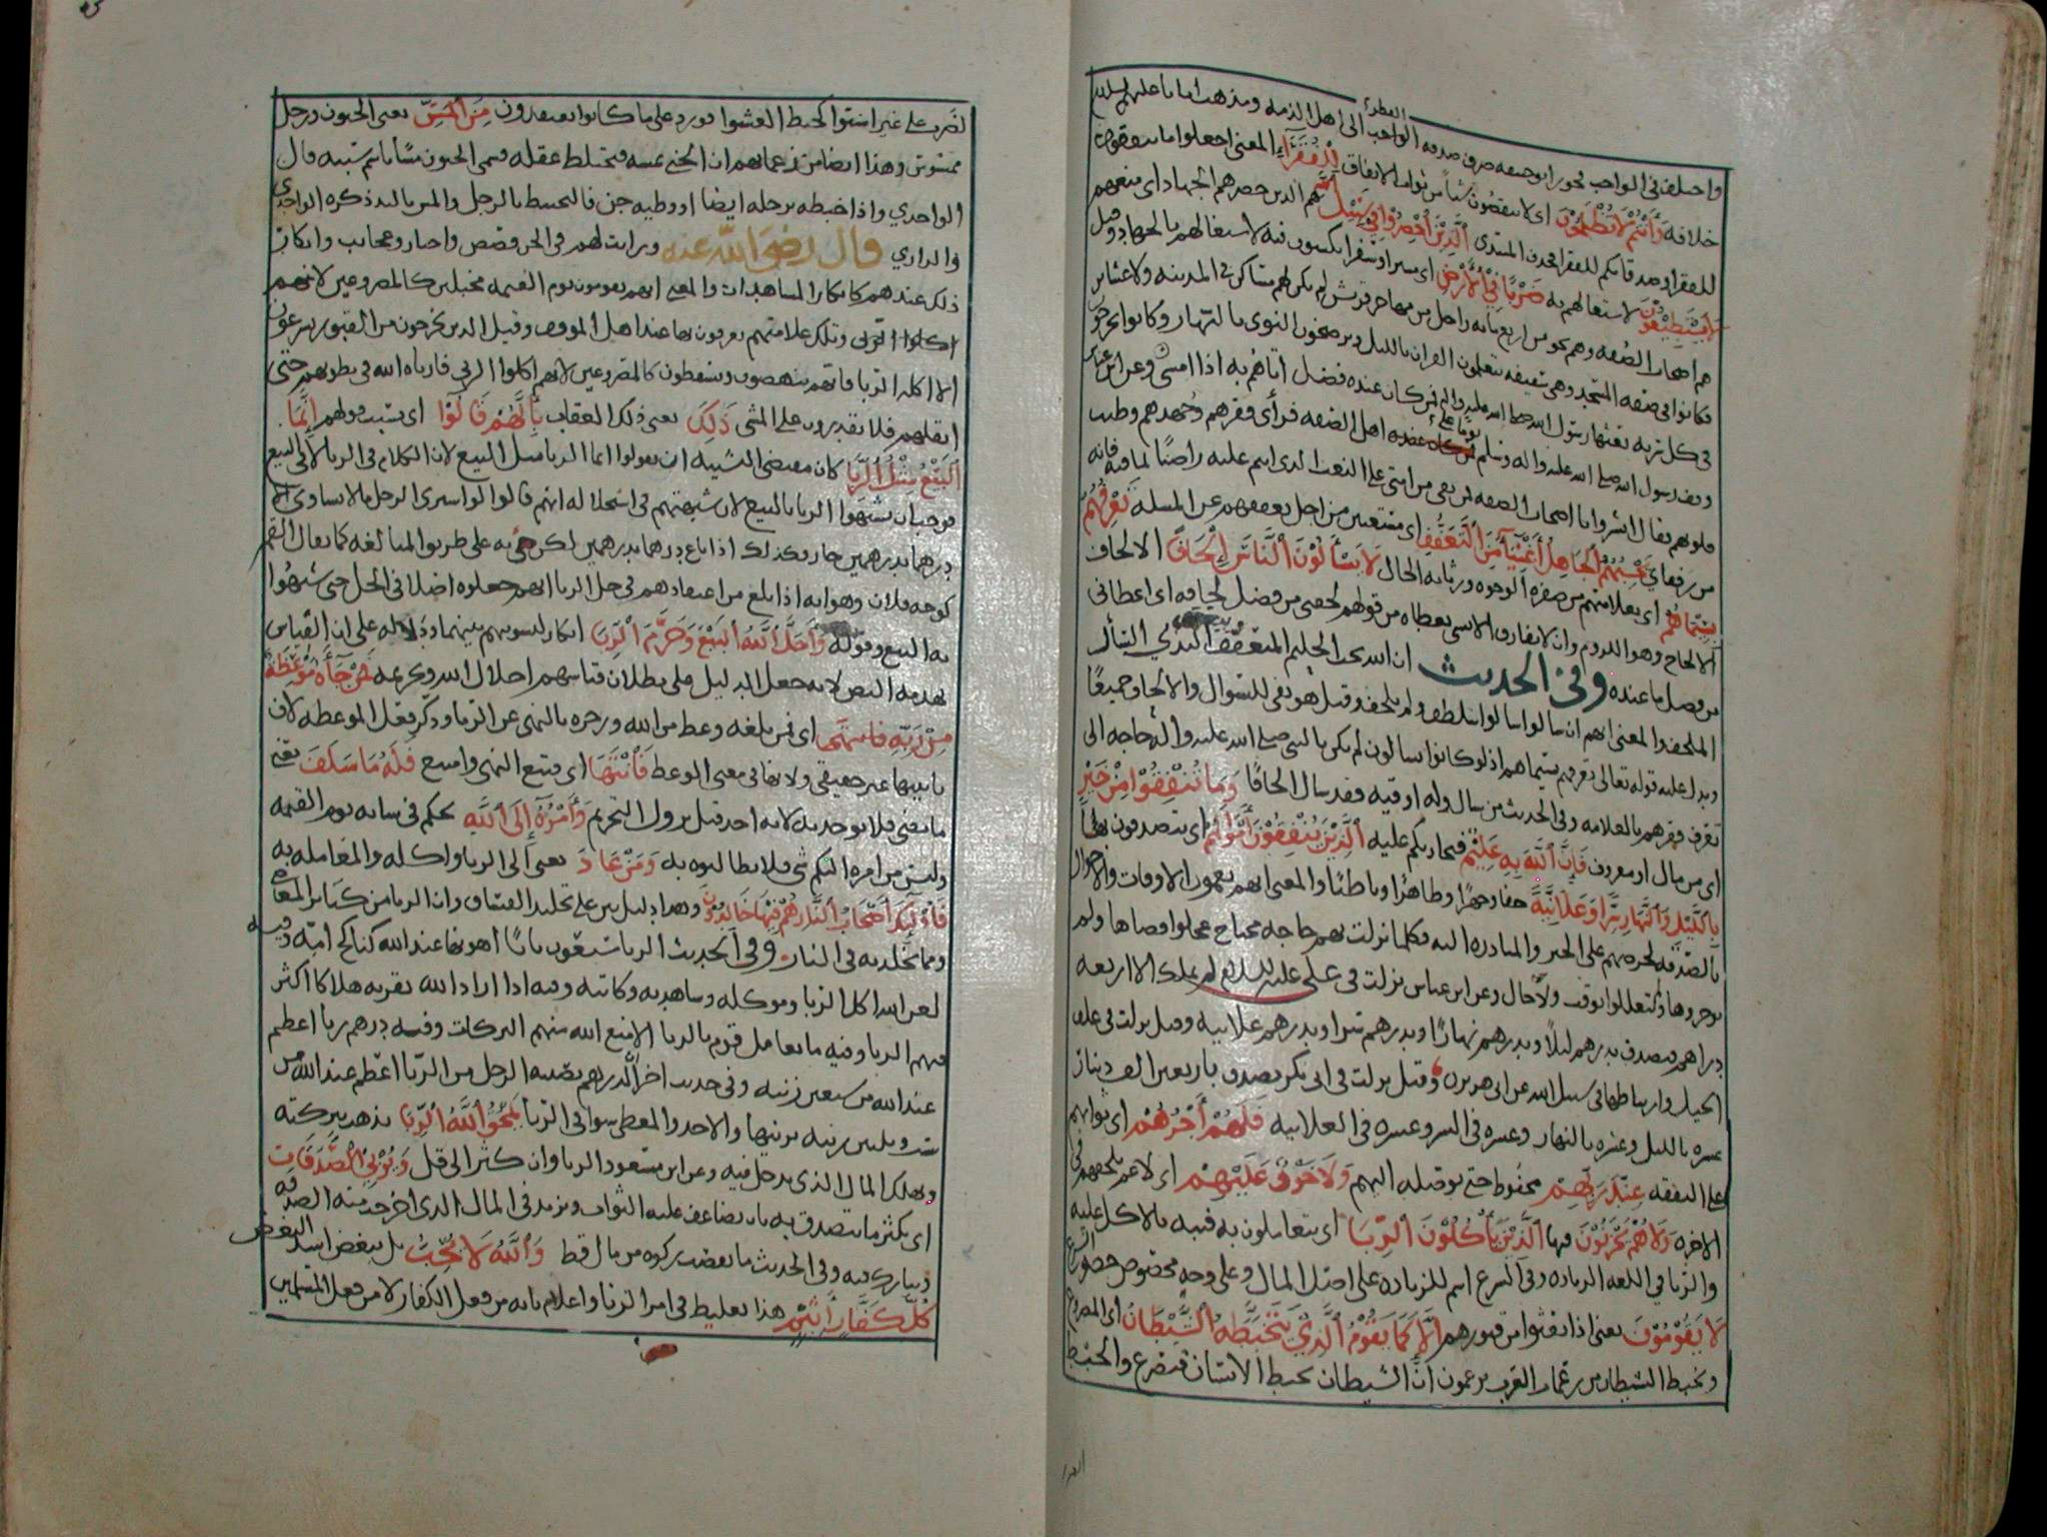 واختلف في الواجب فجوز ابو حنيفه صرف صدقه الفطر الى اهل الذمه ومذهب
خلافه وَأَنْتُمْ لَا تُظْلَمُونَ اي لا تنقصون شيئا من ثواب الانفاق لِلْفُقَرَآءِ المعنى اجعلوا ما تنفقون
للفقرا او صدقاتكم للفقرا فحذف المبتدى ٱلَّذِينَ أُحْصِرُوا فِي سَبِيلِ ٱللَّهِ هم الذين حصرهم الجهاد اي منعهم
لَا يَسْتَطِيعُونَ لاشتغالهم به ضَرْبًا فِي ٱلْأَرْضِ اي سيرا وسفرا يكسبون فيه لاشتغالهم بالجهاد وقيل
هم اصحاب الصفه وهم نحو من اربع مايه راجل من مهاجر قريش لم يكن لهم مساكن في المدينه ولا عشاير
فكانوا في صفه المسجد وهي سقيفه يتعلمون القران بالليل ويرضخون النوى بالنهار وكانوا يخرجون
في كل سريه بعثها رسول الله صلى الله عليه واله فمن كان عنده فضل اتاهم به اذا امسى وعن ابن عباس
وقف رسول الله صلى الله عليه واله وسلم يوما على اهل الصفه فراى فقرهم وجهدهم وطيب
قلوبهم فقال ابشروا يا اصحاب الصفه فمن بقي من امتي على النعت الذي انتم عليه راضيا بما فيه فانه
من رفقاي يَحْسِبُهُمُ ٱلْجَاهِلُ أَغْنِيَآءَ مِنَ ٱلتَّعَفُّفِ اي مستغنين من اجل تعففهم عن المسله تَعْرِفُهُمْ
بِسِيمَاهُمْ اي بعلامتهم من صفره الوجوه ورثاثه الحال لَا يَسْأَلُونَ ٱلنَّاسَ إِلْحَافًا الالحاف
الالحاح وهو اللزوم وان لا يفارق الا بشي يعطاه من قولهم لحفني من فضل لحافه اي اعطاني
من فضل ما عنده وفي الحديث ان الله يحب الحليم المتعفف ويبغض البذي السأل
الملحف والمعنى انهم ان سالوا سالوا بتلطف ولم يلحفوا وقيل هو نفي للسوال والالحاف جميعا
ويدل عليه قوله تعالى تعرفهم بسيماهم اذ لو كانوا يسالون لم يكن بالنبي صلى الله عليه واله حاجه الى
تعرف فقرهم بالعلامه وفي الحديث من سال وله اوقيه فقد سال الحافا وَمَا تُنْفِقُوا مِنْ خَيْرٍ
اي من مال او معروف فَإِنَّ ٱللَّهَ بِهِ عَلِيمٌ فيجازيكم عليه ٱلَّذِينَ يُنْفِقُونَ أَمْوَالَهُمْ اي يتصدقون بها
بِٱلَّيْلِ وَٱلنَّهَارِ سِرًّا وَعَلَانِيَةً خفا وجهرا وظاهرا وباطنا والمعنى انهم يعمون الاوقات والاحوال
بالصدقه لحرصهم على الخير والمبادره اليه فكلما نزلت بهم حاجه محتاج عجلوا قضاها ولم
يوخروها ولم يتعللوا بوقت ولا حال وعن ابن عباس نزلت في علي عليه السلام لم يملك الا اربعه
دراهم فتصدق بدرهم ليلا وبدرهم نهارا وبدرهم سرا وبدرهم علانيه وقيل نزلت في علف
الخيل وارتباطها في سبيل الله عن ابي هريره وقيل نزلت في ابي بكر تصدق باربعين الف دينار
عشره بالليل وعشره بالنهار وعشره في السر وعشره في العلانيه فَلَهُمْ أَجْرُهُمْ اي ثوابهم
على النفقه عِنْدَ رَبِّهِمْ محفوظ حتى يوصله اليهم وَلَا خَوْفٌ عَلَيْهِمْ اي لا غم يلحقهم في
الاخره وَلَا هُمْ يَحْزَنُونَ فيها ٱلَّذِينَ يَأْكُلُونَ ٱلرِّبَا اي يتعاملون به فنبه بالاكل عليه
والربا في اللغه الزياده وفي الشرع اسم للزياده على اصل المال وعلى وجه مخصوص حظره الشرع
لَا يَقُومُونَ يعني اذا بعثوا من قبورهم إِلَّا كَمَا يَقُومُ ٱلَّذِي يَتَخَبَّطُهُ ٱلشَّيْطَانُ اي المصروع
وتخبط الشيطان من زعمات العرب يزعمون ان الشيطان يخبط الانسان فيصرع والخبط
الضرب على غير استوا كخبط العشوا فورد على ما كانوا يعتقدون مِنَ ٱلْمَسِّ يعني الجنون ورجل
ممسوس وهذا ايضا من زعماتهم ان الجني يمسه فيختلط عقله فسمي الجنون مسا باسم سببه قال
الواحدي واذا خبطه برجله ايضا او وطيه جن فالتخبط بالرجل والمس باليد ذكره الواحدي
والرازي قال رضي الله عنه ورايت لهم في الجن قصص واخبار وعجائب وانكار
ذلك عندهم كانكار المشاهدات والمعنى انهم يقومون يوم القيمه مخبلين كالمصروعين لانهم
اكلوا الربى وتلك علامتهم يعرفون بها عند اهل الموقف وقيل الذين يخرجون من القبور يسرعون
الا اكله الربا فانهم ينهضون ويسقطون كالمصروعين لانهم اكلوا الربى فارباه الله في بطونهم حتى
اثقلهم فلا يقدرون على المشي ذَلِكَ يعني ذلك العقاب بِأَنَّهُمْ قَالُوا اي بسبب قولهم إِنَّمَا
ٱلْبَيْعُ مِثْلُ ٱلرِّبَا كان مقتضى التشبيه ان يقولوا انما الربا مثل البيع لان الكلام في الربا لا في البيع
فوجب ان يشبهوا الربا بالبيع لان شبهتهم في استحلاله انهم قالوا لو اشترى الرجل ما لا يساوي الا
درهما بدرهمين جاز فكذلك اذا باع درهما بدرهمين لكن جي به على طريق المبالغه كما يقال القمر
كوجه فلان وهو انه اذا بلغ من اعتقادهم في حل الربا انهم جعلوه اصلا في الحل حتى شبهوا
به البيع وقوله وَأَحَلَّ ٱللَّهُ ٱلْبَيْعَ وَحَرَّمَ ٱلرِّبَا انكار لتسويتهم بينهما ودلاله على ان القياس
يهدمه النص لانه جعل الدليل على بطلان قياسهم احلال الله وتحريمه فَمَنْ جَآءَهُ مَوْعِظَةٌ
مِنْ رَبِّهِ فَانْتَهَى اي فمن بلغه وعظ من الله وزجره بالنهي عن الربا وذكر فعل الموعظه لان
تانيثها غير حقيقي ولانها في معنى الوعظ فَٱنْتَهَا اي فتبع النهي وامتنع فَلَهُ مَا سَلَفَ يعني
ما مضى فلا يوخذ به لانه اخذ قبل نزول التحريم وَأَمْرُهُ إِلَى ٱللَّهِ يحكم في شانه يوم القيمه
وليس من امره اليكم شي فلا تطالبوه به وَمَنْ عَادَ يعني الى الربا واكله والمعامله به
فَأُولَئِكَ أَصْحَابُ ٱلنَّارِ هُمْ فِيهَا خَالِدُونَ وهذا دليل بين على تخليد الفساق وان الربا من كبائر المعاصي
ومما يخلد به في النار وفي الحديث الربا سبعون بابا اهونها عند الله كناكح امه وفيه
لعن الله اكل الربا وموكله وشاهديه وكاتبه وفيه اذا اراد الله بقريه هلاكا اكثر
فيهم الربا وفيه ما تعامل قوم بالربا الا منع الله منهم البركات وفيه درهم ربا اعظم
عند الله من سبعين زنيه وفي حديث اخر الدرهم يصيبه الرجل من الربا اعظم عند الله من
ست وثلثين زنيه يزنيها والاخذ والمعطي سوا في الربا يَمْحَقُ ٱللَّهُ ٱلرِّبَا يذهب ببركته
ويهلك المال الذي يدخل فيه وعن ابن مسعود الربا وان كثر الى قل وَيُرْبِي ٱلصَّدَقَاتِ
اي يكثر ما يتصدق به بان يضاعف عليه الثواب ويزيد في المال الذي اخرجت منه الصدقه
ويبارك فيه وفي الحديث ما نقصت زكوه من مال قط وَٱللَّهُ لَا يُحِبُّ بل يبغض اشد البغض
كُلَّ كَفَّارٍ أَثِيمٍ هذا تغليظ في امر الربا واعلام بانه من فعل الكفار لا من فعل المسلمين